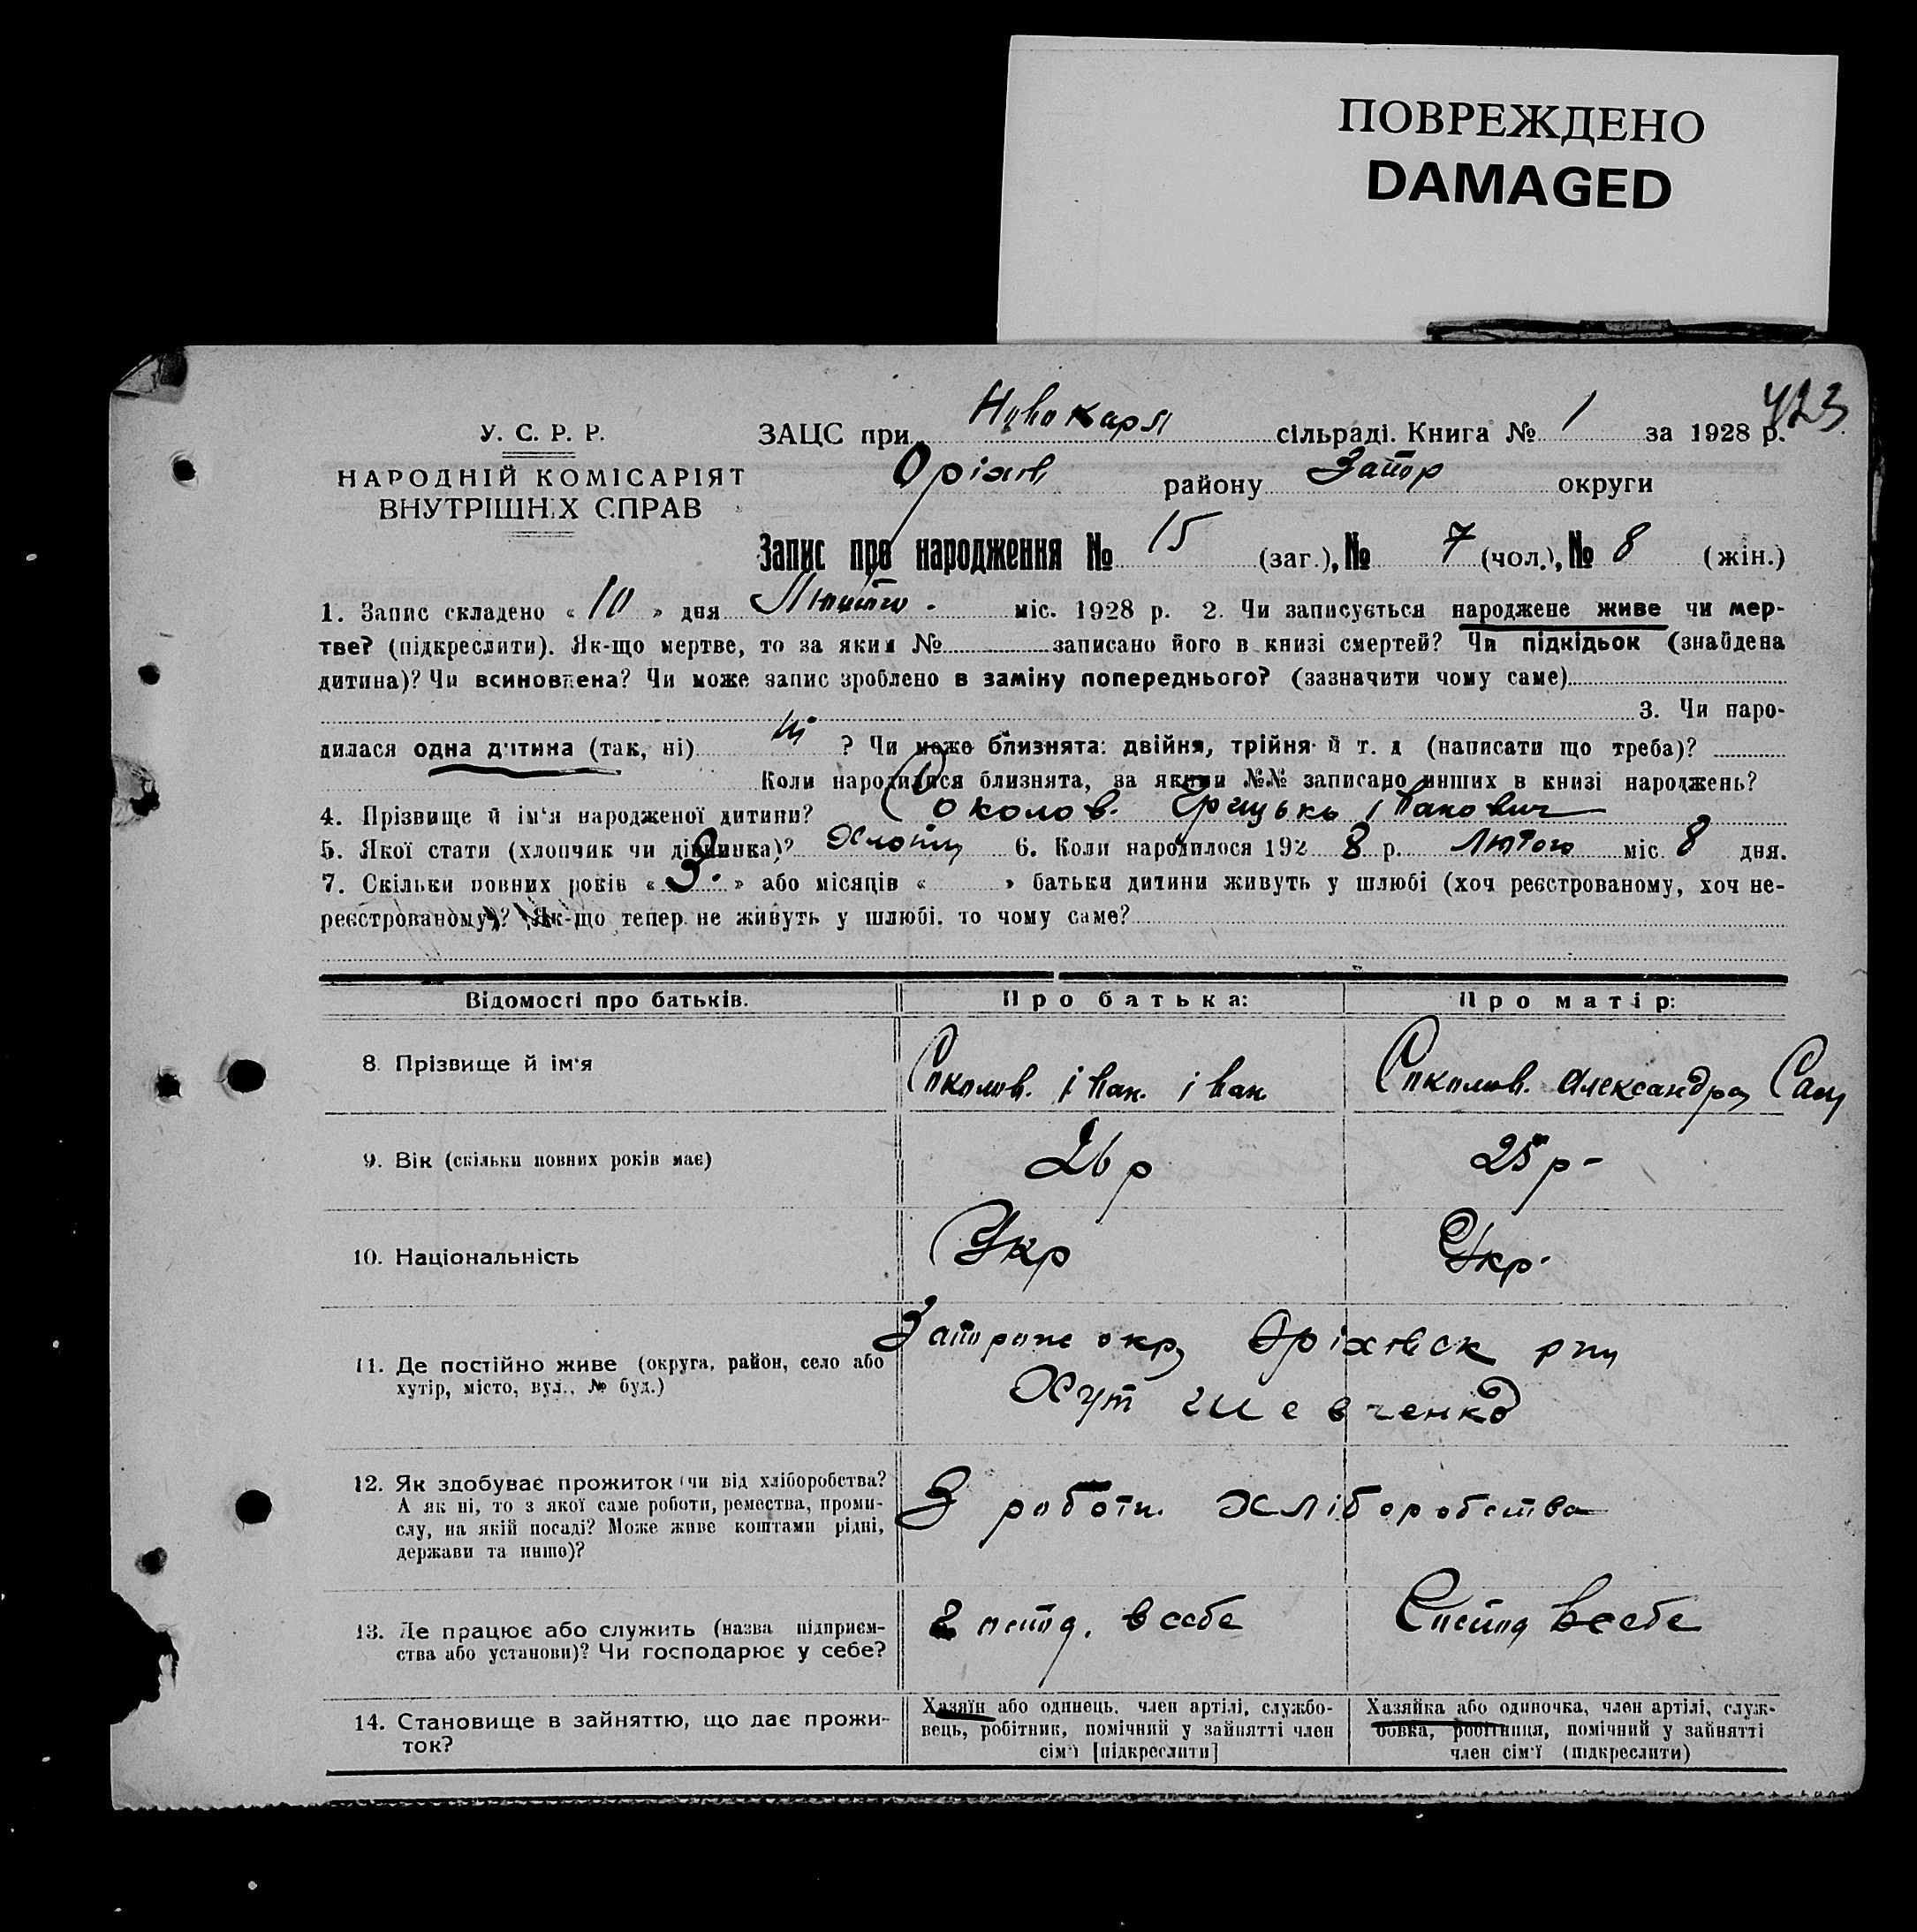 ПОВРЕЖДЕНО
DAMAGED
423
У. С. Р. Р.
НАРОДНІЙ КОМІСАРІЯТ
ВНУТРІШНІХ СПРАВ
ЗАЦС при Новокарл сільраді. Книга № 1 за 1928 р.
Оріхів району Запор округи
Запис про народження № 15 (заг.), № 7 (чол.), № 8 (жін.)
1. Запис складено « 10 » дня Лютого. міс. 1928 р. 2. Чи записується народжене живе чи мер-
тве? (підкреслити). Як-що мертве, то за яким № записано його в книзі смертей? Чи підкідьок (знайдена
дитина)? Чи всиновлена? Чи може запис зроблено в заміну попереднього? (зазначити чому саме)
3. Чи наро-
дилася одна дитина (так, ні) ні ? Чи може близнята: двійня, трійня й т. д (написати що треба)?
Коли народилися близнята, за якими №№ записано инших в книзі народжень?
4. Прізвище й ім'я народженої дитини? Соколов. Грицько Іванович
5. Якої стати (хлопчик чи дівчинка)? Хлопец 6. Коли народилося 1928 р. Лютого міс. 8 дня.
7. Скільки повних років « 3. » або місяців « » батьки дитини живуть у шлюбі (хоч реєстрованому, хоч не-
реєстрованому)? Як-що тепер не живуть у шлюбі, то чому саме?
Відомості про батьків. Про батька: Про матір:
8. Прізвище й ім'я Соколов. Іван. Іван. Соколов. Александра
9. Вік (скільки повних років має) 26 р 25 р-
10. Національність Укр Укр.
11. Де постійно живе (округа, район, село або
хутір, місто, вул., № буд.)
Запорож окр Оріховск
Хут Шевченко
12. Як здобуває прожиток (чи від хліборобства?
А як ні, то з якої саме роботи, ремества, проми-
слу, на якій посаді? Може живе коштами рідні,
держави та инше)?
З роботи хліборобства
13. Де працює або служить (назва підприєм-
ства або установи)? Чи господарює у себе?
в себе в себе
14. Становище в зайняттю, що дає прожи-
ток?
Хазяїн або одинець, член артілі, службо-
вець, робітник, помічний у зайнятті член
сім'ї [підкреслити]
Хазяйка або одиночка, член артілі, служ-
бовка, робітниця, помічний у зайнятті
член сім'ї (підкреслити)